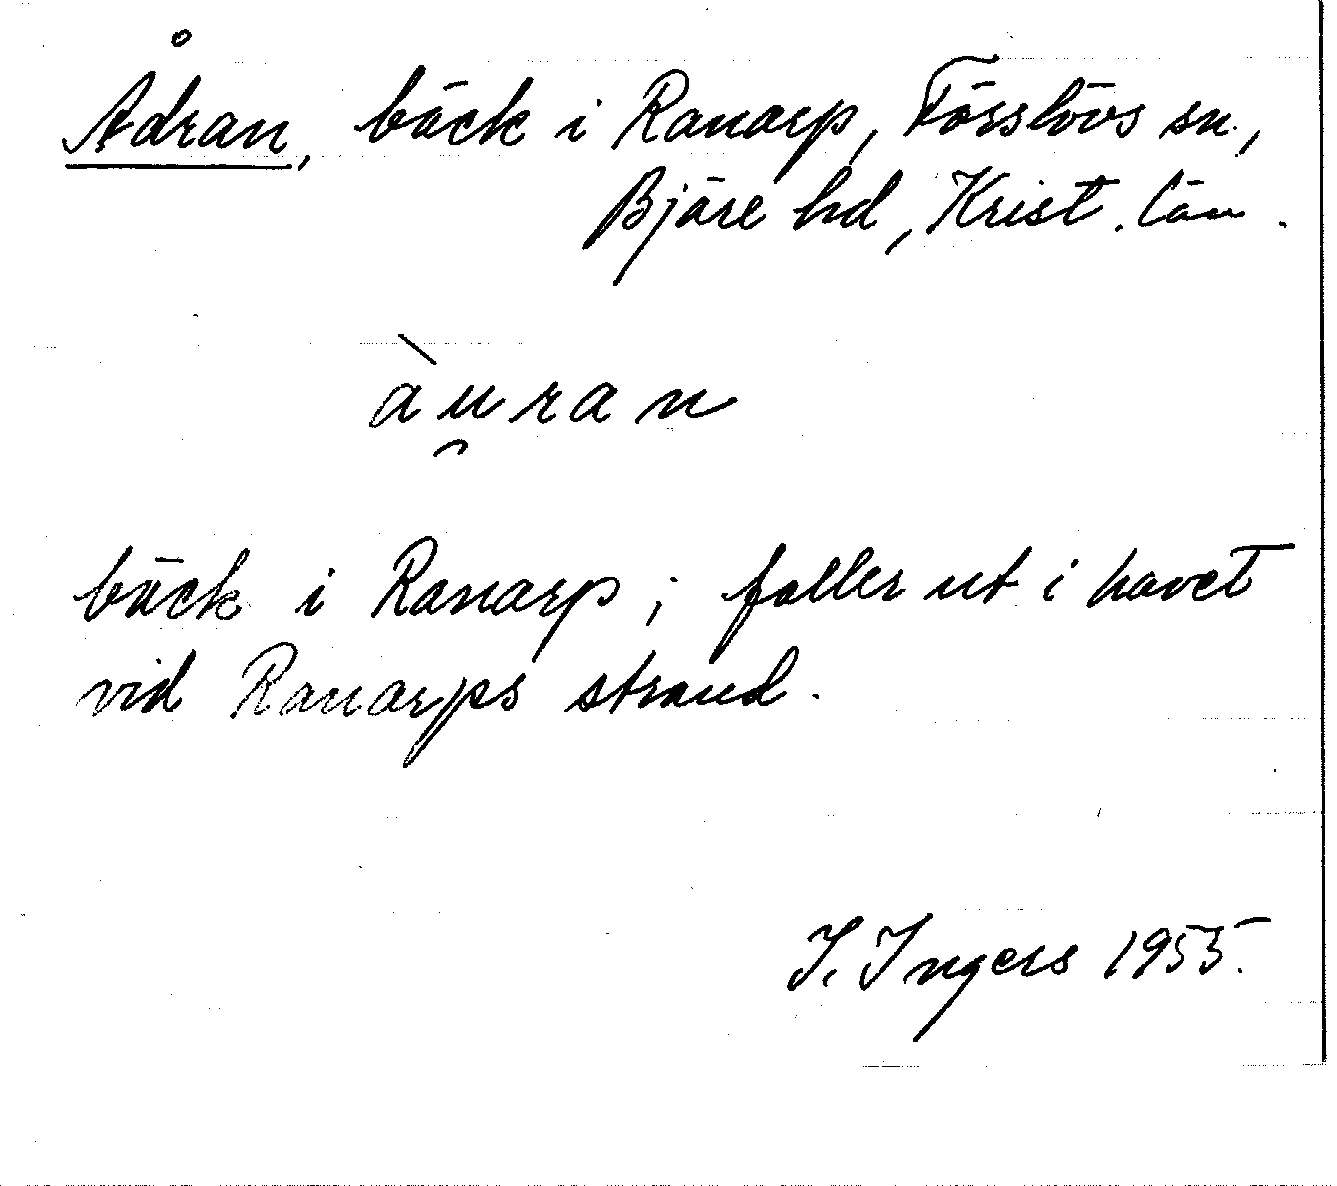 Ådran, bäck i Ranarp, Förslövs sn.,
Bjäre hd, Krist. län.
àu̯ran
bäck i Ranarp; faller ut i havet
vid Ranarps strand.
I. Ingers 1955.